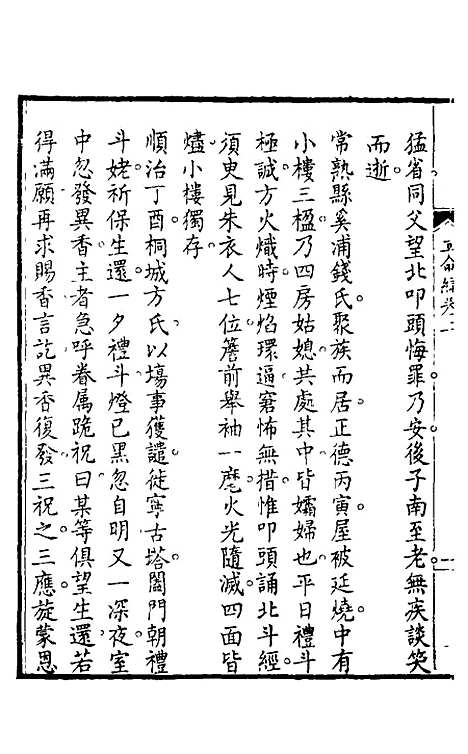 猛省同父望北叩頭悔罪乃安後子南至老無疾談笑
而逝
常熟縣奚浦錢氏聚族而居正德丙寅屋被延燒中有
小樓三楹乃四房姑媳共處其中皆孀婦也平日禮斗
極誠方火熾時煙焰環逼窘怖無措惟叩頭誦北斗經
須臾見朱衣人七位簷前舉袖一麾火光隨滅四面皆
燼小樓獨存
順治丁酉桐城方氏以塲事獲譴徙寧古塔闔門朝禮
斗姥祈保生還一夕禮斗燈已黑忽自明又一深夜室
中忽發異香主者急呼眷属跪祝曰某等俱望生還若
得滿願再求賜香言訖異香復發三祝之三應旋蒙恩